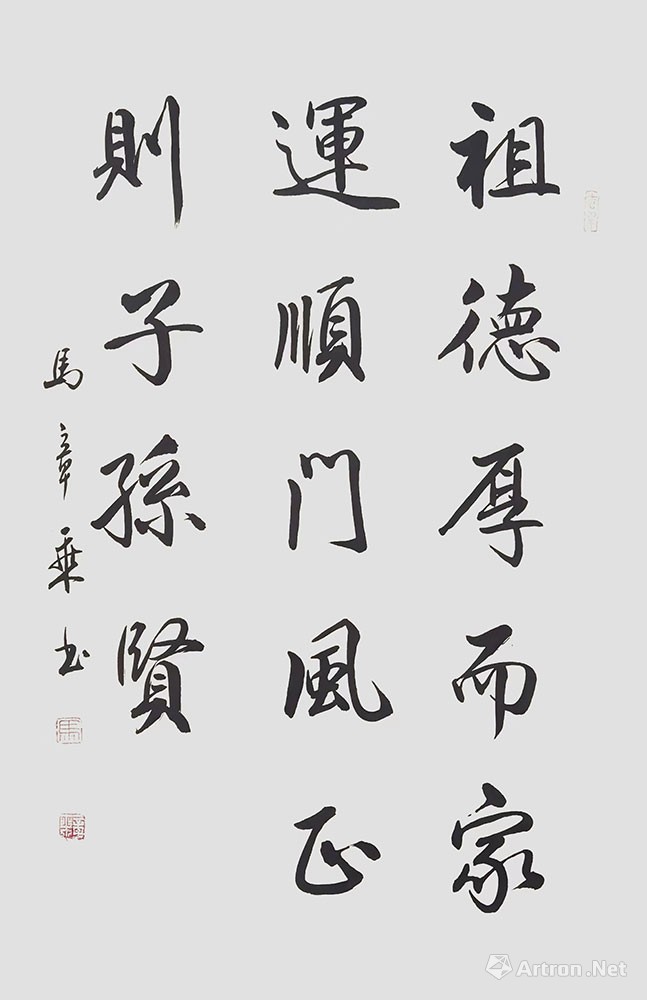 祖德厚而家
運順門風正
則子孫賢
馬章乘书
Artron.Net